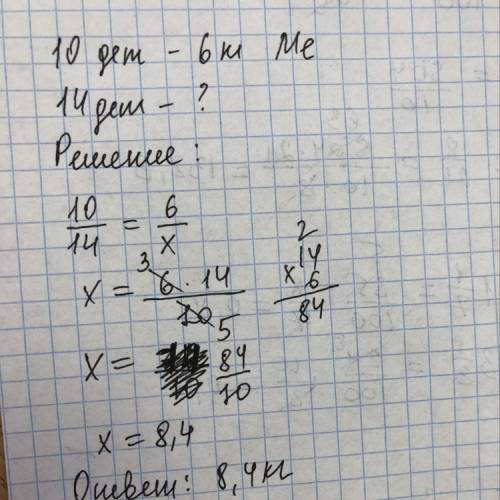 10 дет - 6 кг Ме
14 дет - ?
Решение:
10/14 = 6/x
x = 6 · 14 / 10
3
5
2
14
x 6
84
x = 84/10
x = 8,4
Ответ: 8,4 кг